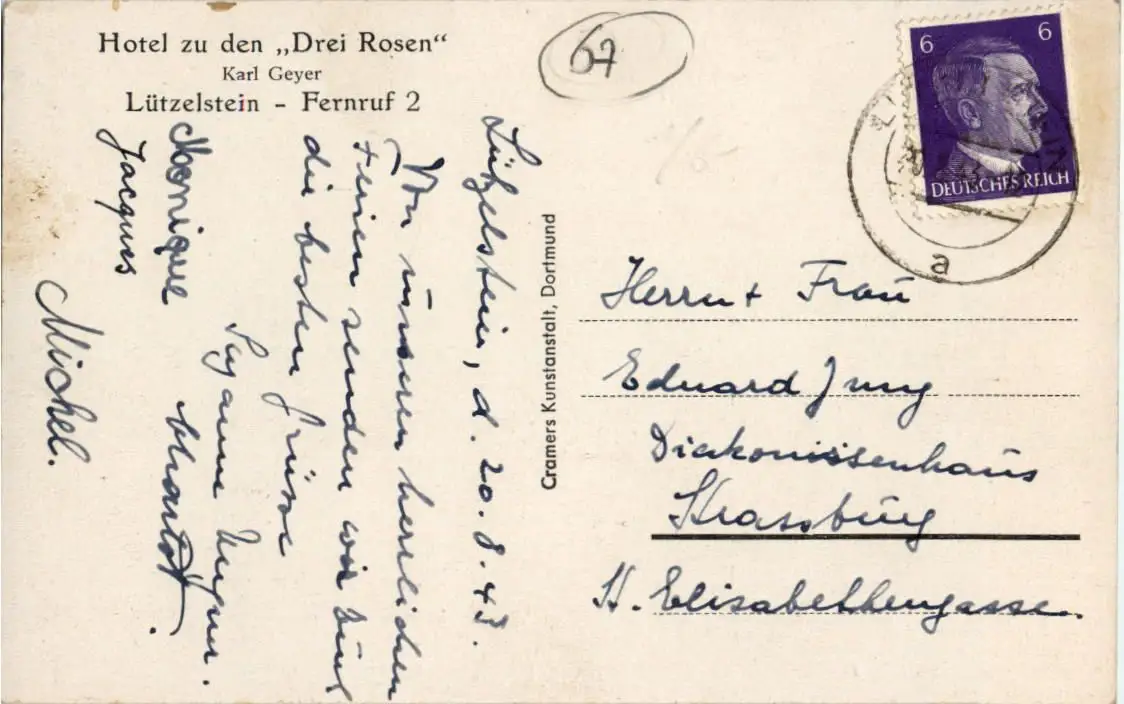 Hotel zu den „Drei Rosen“
Karl Geyer
Lützelstein - Fernruf 2
67
6 6
DEUTSCHES REICH
a
Lützelstein, d. 20.8.43.
Von unseren herrlichen
Ferien senden wir Euch
die besten Grüsse
Monique
Jacques
Michel.
Cramers Kunstanstalt, Dortmund
Herrn + Frau
Eduard Jung
Diakonissenhaus
Strassburg
St. Elisabethengasse.